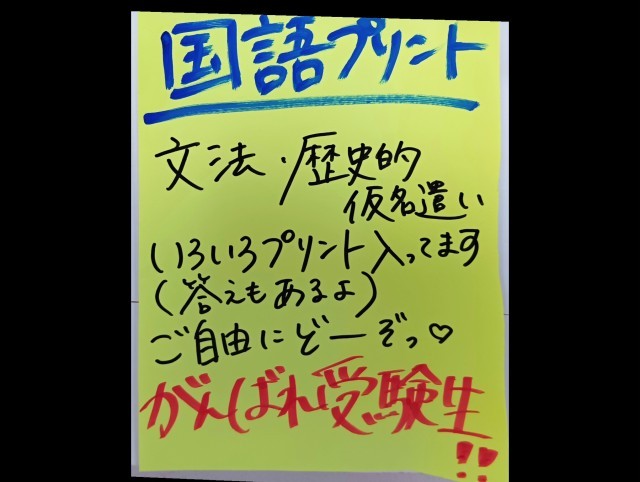 国語プリント
文法・歴史的
仮名遣い
いろいろプリント入ってます
(答えもあるよ)
ご自由にどーぞっ♡
がんばれ受験生!!